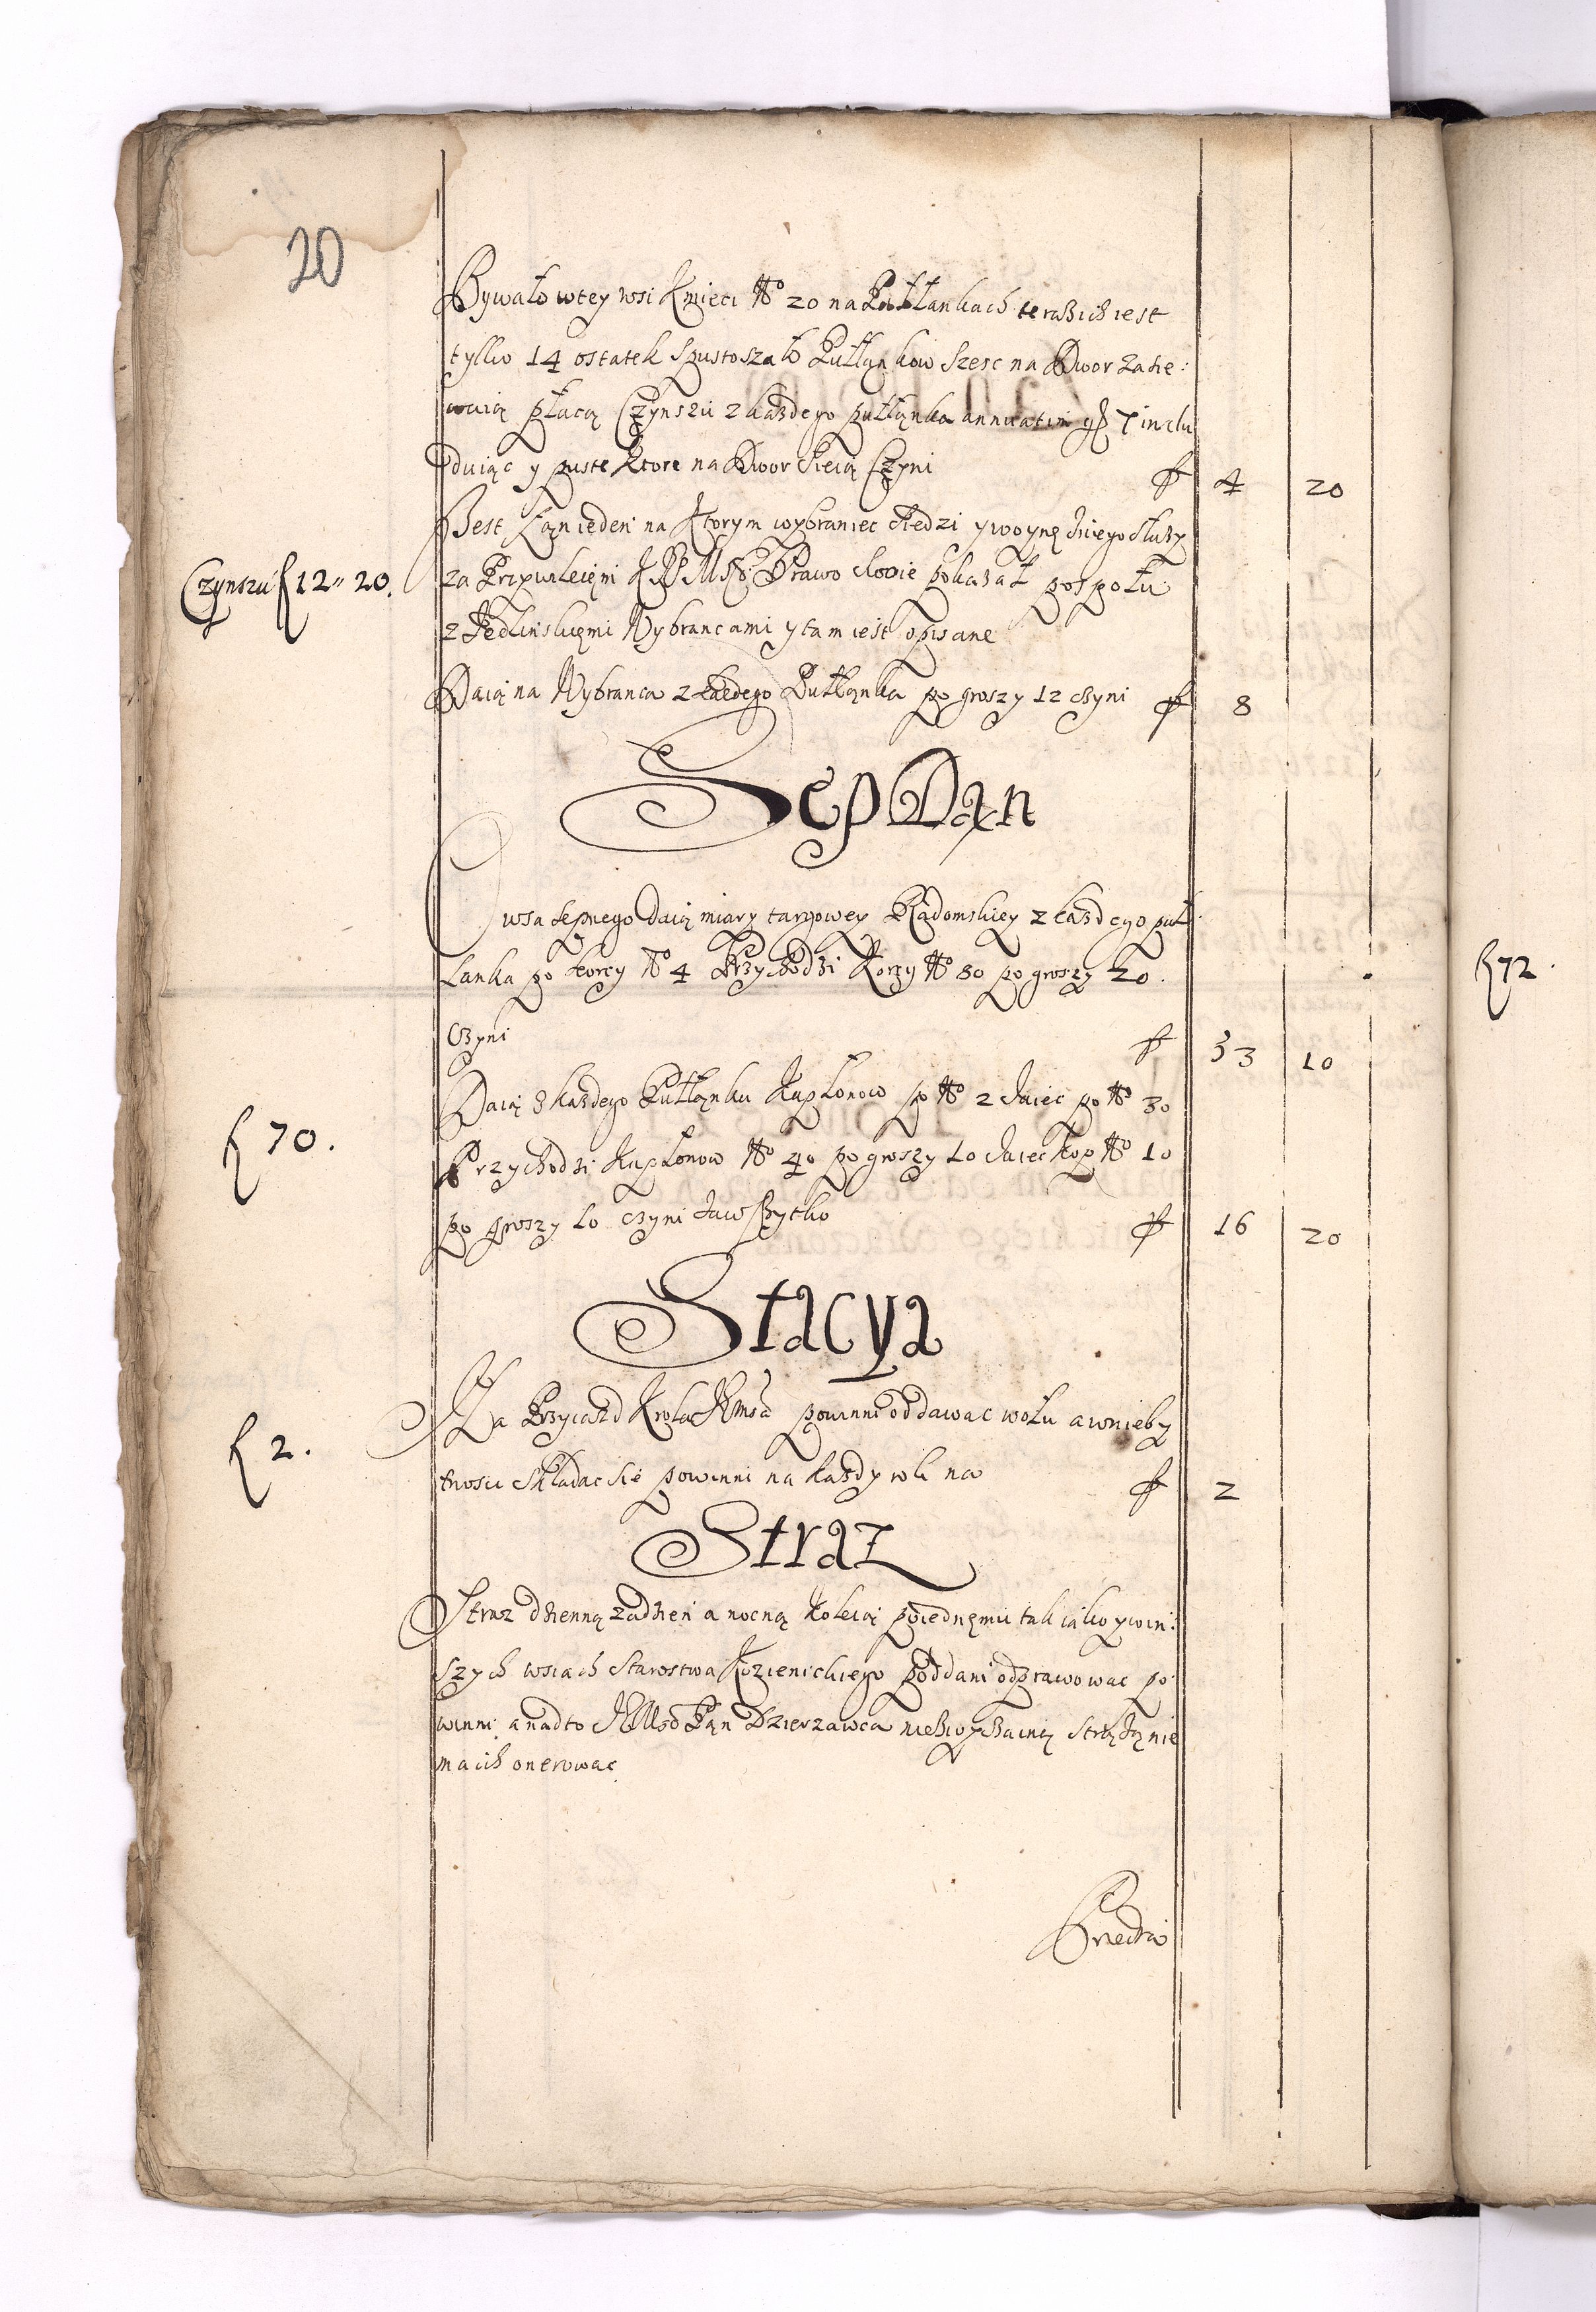 20
Bywało wtey wsi Kmieci No 20 na Pułłankach teraz ich iest
tylko 14 ostatek Spustoszało Pułłąnkow Szesc na Dwor zasie:
waią płacą Czynszu z każdego pułłąnka annuatim gß 7 inclu
duiąc y puste Ktore na Dwor Sieią Czyni f 4 20
Jest Łąn ieden na Ktorym wybraniec Siedzi y woynę Sniego Służy
Czynszu f 12 " 20.
za Przywileięm JKMSci Prawo Swoie pokazał pospołu
z Jedlinskięmi Wybrancami y tam iest opisane
Daią na Wybranca z każdego Pułłąnka po groszy 12 czyni f 8
Sep Dąn
Owsa sepnego Daią miary targowey Radomskiey z każdego puł
łanka po korcy No 4 Przychodzi Korcy No 80 po groszy 20.
f 72.
Czyni f 53 10
Daią z każdego Pułłąnku Kapłonow po No 2 Jaiec po No 30
f 70.
Przychodzi Kapłonow No 40 po groszy 10 Jaiec kop No 10
po groszy 10 czyni to wszytko f 16 20
Stacya
Na Przyiazd Krola JKMsci powinni oddawac wołu a wnieby
f 2.
tnosci składac sie powinni na każdy rok na f 2
Straz
Straz dzienną zadzien a nocną Koleią poiednęmu tak iako y win:
szych wsiach Starostwa Kozienickiego poddani odprawowac po
winni a nadto JKMsci Pąn Dzierzawca niezwyczainą Strażą nie
ma ich onerowac.